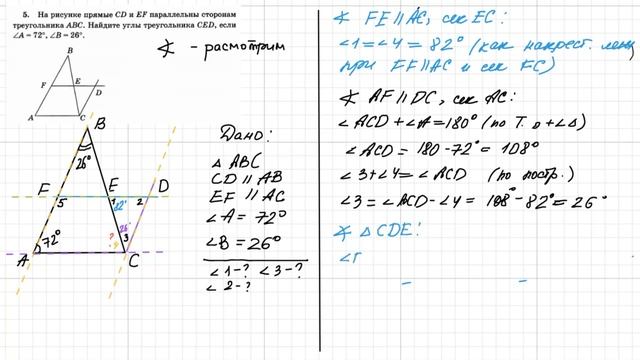 5. На рисунке прямые CD и EF параллельны сторонам
треугольника ABC. Найдите углы треугольника CED, если
∠A = 72°, ∠B = 26°.
B
F
E
D
A
C
∢ - расмотрим
B
26°
F
E
D
5
1
82°
2
26°
?
4
3
72°
A
C
Дано:
△ ABC
CD ∥ AB
EF ∥ AC
∠A = 72°
∠B = 26°
∠1-? ∠3-?
∠2-?
∢ FE ∥ AC, сек EC:
∠1=∠4=82° (как накрест. леж
при EF∥AC и сек EC)
∢ AF ∥ DC, сек AC:
∠ACD+∠A=180° (по Т.
∠ACD = 180-72° = 108°
∠3+∠4=∠ACD (по постр.)
∠3=∠ACD-∠4= 108°-82°=26°
∢ △CDE: